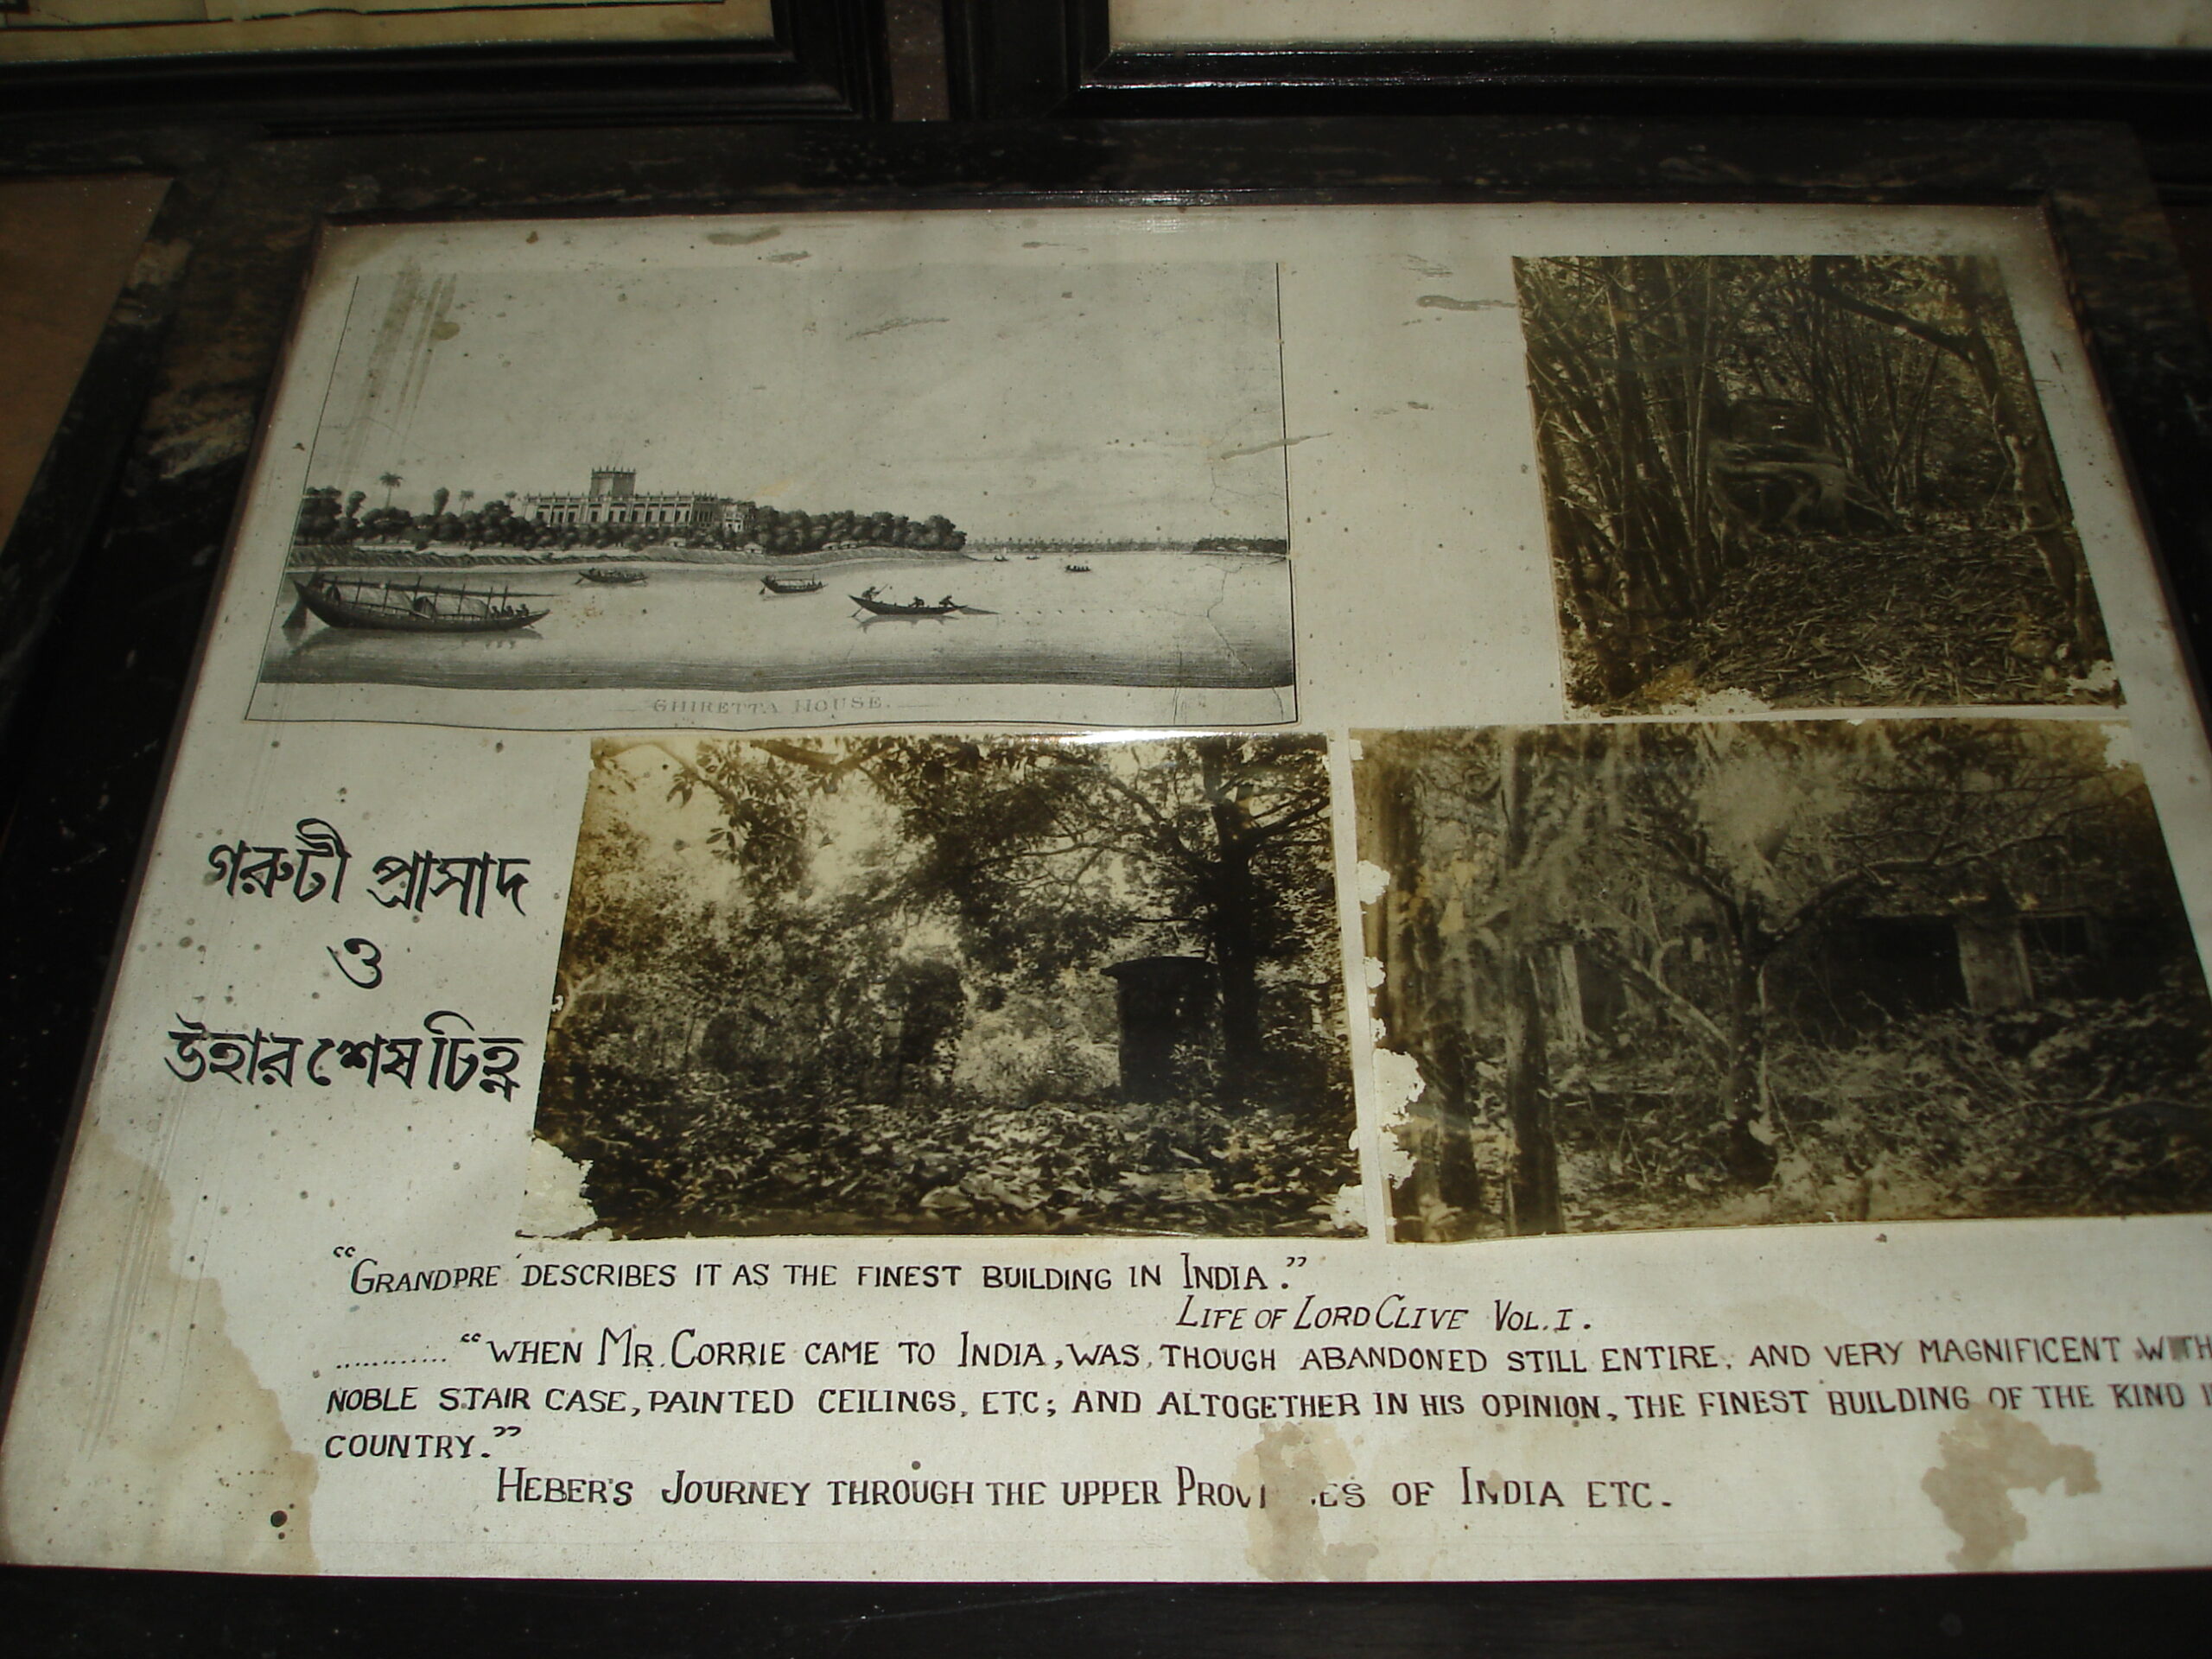 GHIRETTA HOUSE.
গরুটী প্রাসাদ
ও
উহার শেষ চিহ্ন
"GRANDPRE DESCRIBES IT AS THE FINEST BUILDING IN INDIA."
LIFE OF LORD CLIVE VOL. I.
............"WHEN MR. CORRIE CAME TO INDIA, WAS, THOUGH ABANDONED STILL ENTIRE, AND VERY MAGNIFICENT WITH
NOBLE STAIR CASE, PAINTED CEILINGS, ETC; AND ALTOGETHER IN HIS OPINION, THE FINEST BUILDING OF THE KIND
COUNTRY."
HEBER'S JOURNEY THROUGH THE UPPER OF INDIA ETC.